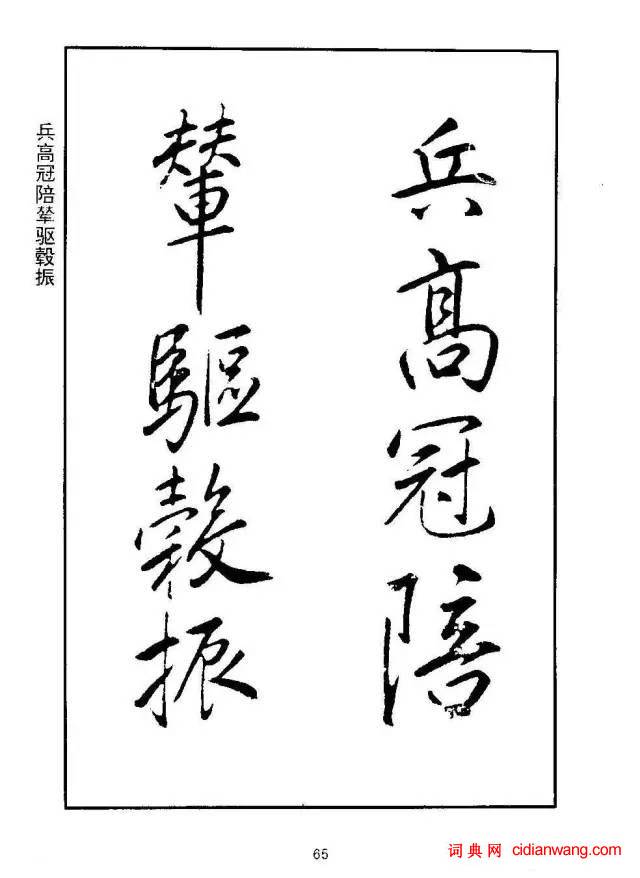 兵高冠陪
輦驅轂振
兵高冠陪辇驱毂振
65
词典网 cidianwang.com